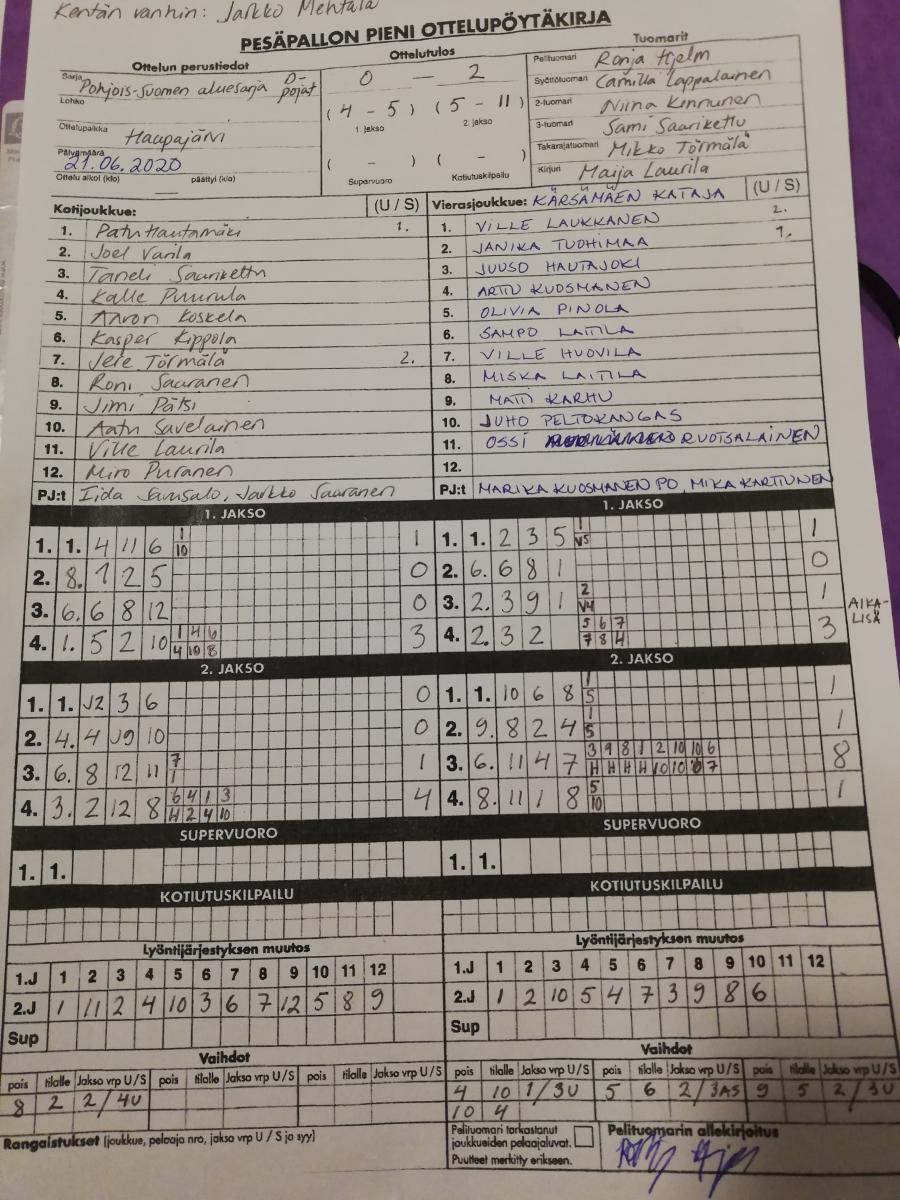 Kentän vanhin: Jarkko Mehtälä
PESÄPALLON PIENI OTTELUPÖYTÄKIRJA
Ottelun perustiedot
Sarja Pohjois-Suomen aluesarja D-pojat
Lohko
Ottelupaikka Haapajärvi
Päivämäärä 21.06.2020
Ottelu alkoi (klo) päättyi (klo)
Ottelutulos
0 — 2
(4 - 5) (5 - 11)
1. jakso 2. jakso
( - ) ( - )
Supervuoro Kotiutuskilpailu
Tuomarit
Pelituomari Ronja Hjelm
Syöttötuomari Camilla Lappalainen
2-tuomari Niina Kinnunen
3-tuomari Sami Saarikettu
Takarajatuomari Mikko Törmälä
Kirjuri Maija Laurila
Kotijoukkue: (U / S)
1. Patu Hautamäki 1.
2. Joel Varila
3. Taneli Saarikettu
4. Kalle Puurula
5. Aaron Koskela
6. Kasper Kippola
7. Jere Törmälä 2.
8. Roni Sauranen
9. Jimi Pätsi
10. Aatu Savelainen
11. Ville Laurila
12. Miro Puranen
PJ:t Iida Jarkko Saaranen
Vierasjoukkue: KÄRSÄMÄEN KATAJA (U / S)
1. VILLE LAUKKANEN 2.
2. JANIKA TUOHIMAA 1.
3. JUUSO HAUTAJOKI
4. ARTTU KUOSMANEN
5. OLIVIA PINOLA
6. SAMPO LAITILA
7. VILLE HUOVILA
8. MISKA LAITILA
9. MATTI KARHU
10. JUHO PELTOKANGAS
11. OSSI RUOTSALAINEN
12.
PJ:t MARIKA KUOSMANEN PO, MIKA KARTTUNEN
1. JAKSO
1. 1. 4 11 6 1 1
10
2. 8. 1 2 5 0
3. 6. 6 8 12 0
4. 1. 5 2 10 1 4 6 3
4 10 8
2. JAKSO
1. 1. J2 3 6 0
2. 4. 4 J9 10 0
3. 6. 8 12 11 7 1
1
4. 3. 2 12 8 6 4 1 3 4
H 2 4 10
SUPERVUORO
1. 1.
KOTIUTUSKILPAILU
1. JAKSO
1. 1. 2 3 5 1 1
V5
2. 6. 6 8 1 0
3. 2. 3 9 1 2 1
V4
AIKALISÄ
4. 2. 3 2 5 6 7 3
7 8 H
2. JAKSO
1. 1. 10 6 8 1 1
5
2. 9. 8 2 4 1 1
5
3. 6. 11 4 7 3 9 8 1 2 10 10 6 8
H H H H 10 10 7
4. 8. 11 1 8 5 1
10
SUPERVUORO
1. 1.
KOTIUTUSKILPAILU
Lyöntijärjestyksen muutos
1.J 1 2 3 4 5 6 7 8 9 10 11 12
2.J 1 11 2 4 10 3 6 7 12 5 8 9
Sup
Lyöntijärjestyksen muutos
1.J 1 2 3 4 5 6 7 8 9 10 11 12
2.J 1 2 10 5 4 7 3 9 8 6
Sup
Vaihdot
pois tilalle Jakso vrp U/S pois tilalle Jakso vrp U/S pois tilalle Jakso vrp U/S
8 2 2/4U
Vaihdot
pois tilalle Jakso vrp U/S pois tilalle Jakso vrp U/S pois tilalle Jakso vrp U/S
4 10 1/3U 5 6 2/3AS 9 5 2/3U
10 4
Rangaistukset (joukkue, pelaaja nro, jakso vrp U / S ja syy)
Pelituomari tarkastanut
joukkueiden pelaajaluvat.
Puutteet merkitty erikseen.
Pelituomarin allekirjoitus